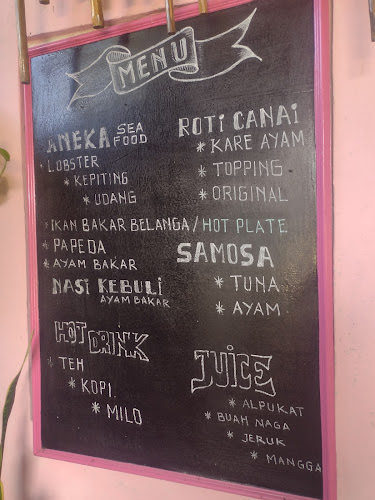 MENU
ANEKA SEA FOOD
* LOBSTER
* KEPITING
* UDANG
* IKAN BAKAR BELANGA / HOT PLATE
* PAPEDA
* AYAM BAKAR
NASI KEBULI
AYAM BAKAR
HOT DRINK
* TEH
* KOPI
* MILO
ROTI CANAI
* KARE AYAM
* TOPPING
* ORIGINAL
SAMOSA
* TUNA
* AYAM
JUICE
* ALPUKAT
* BUAH NAGA
* JERUK
* MANGGA